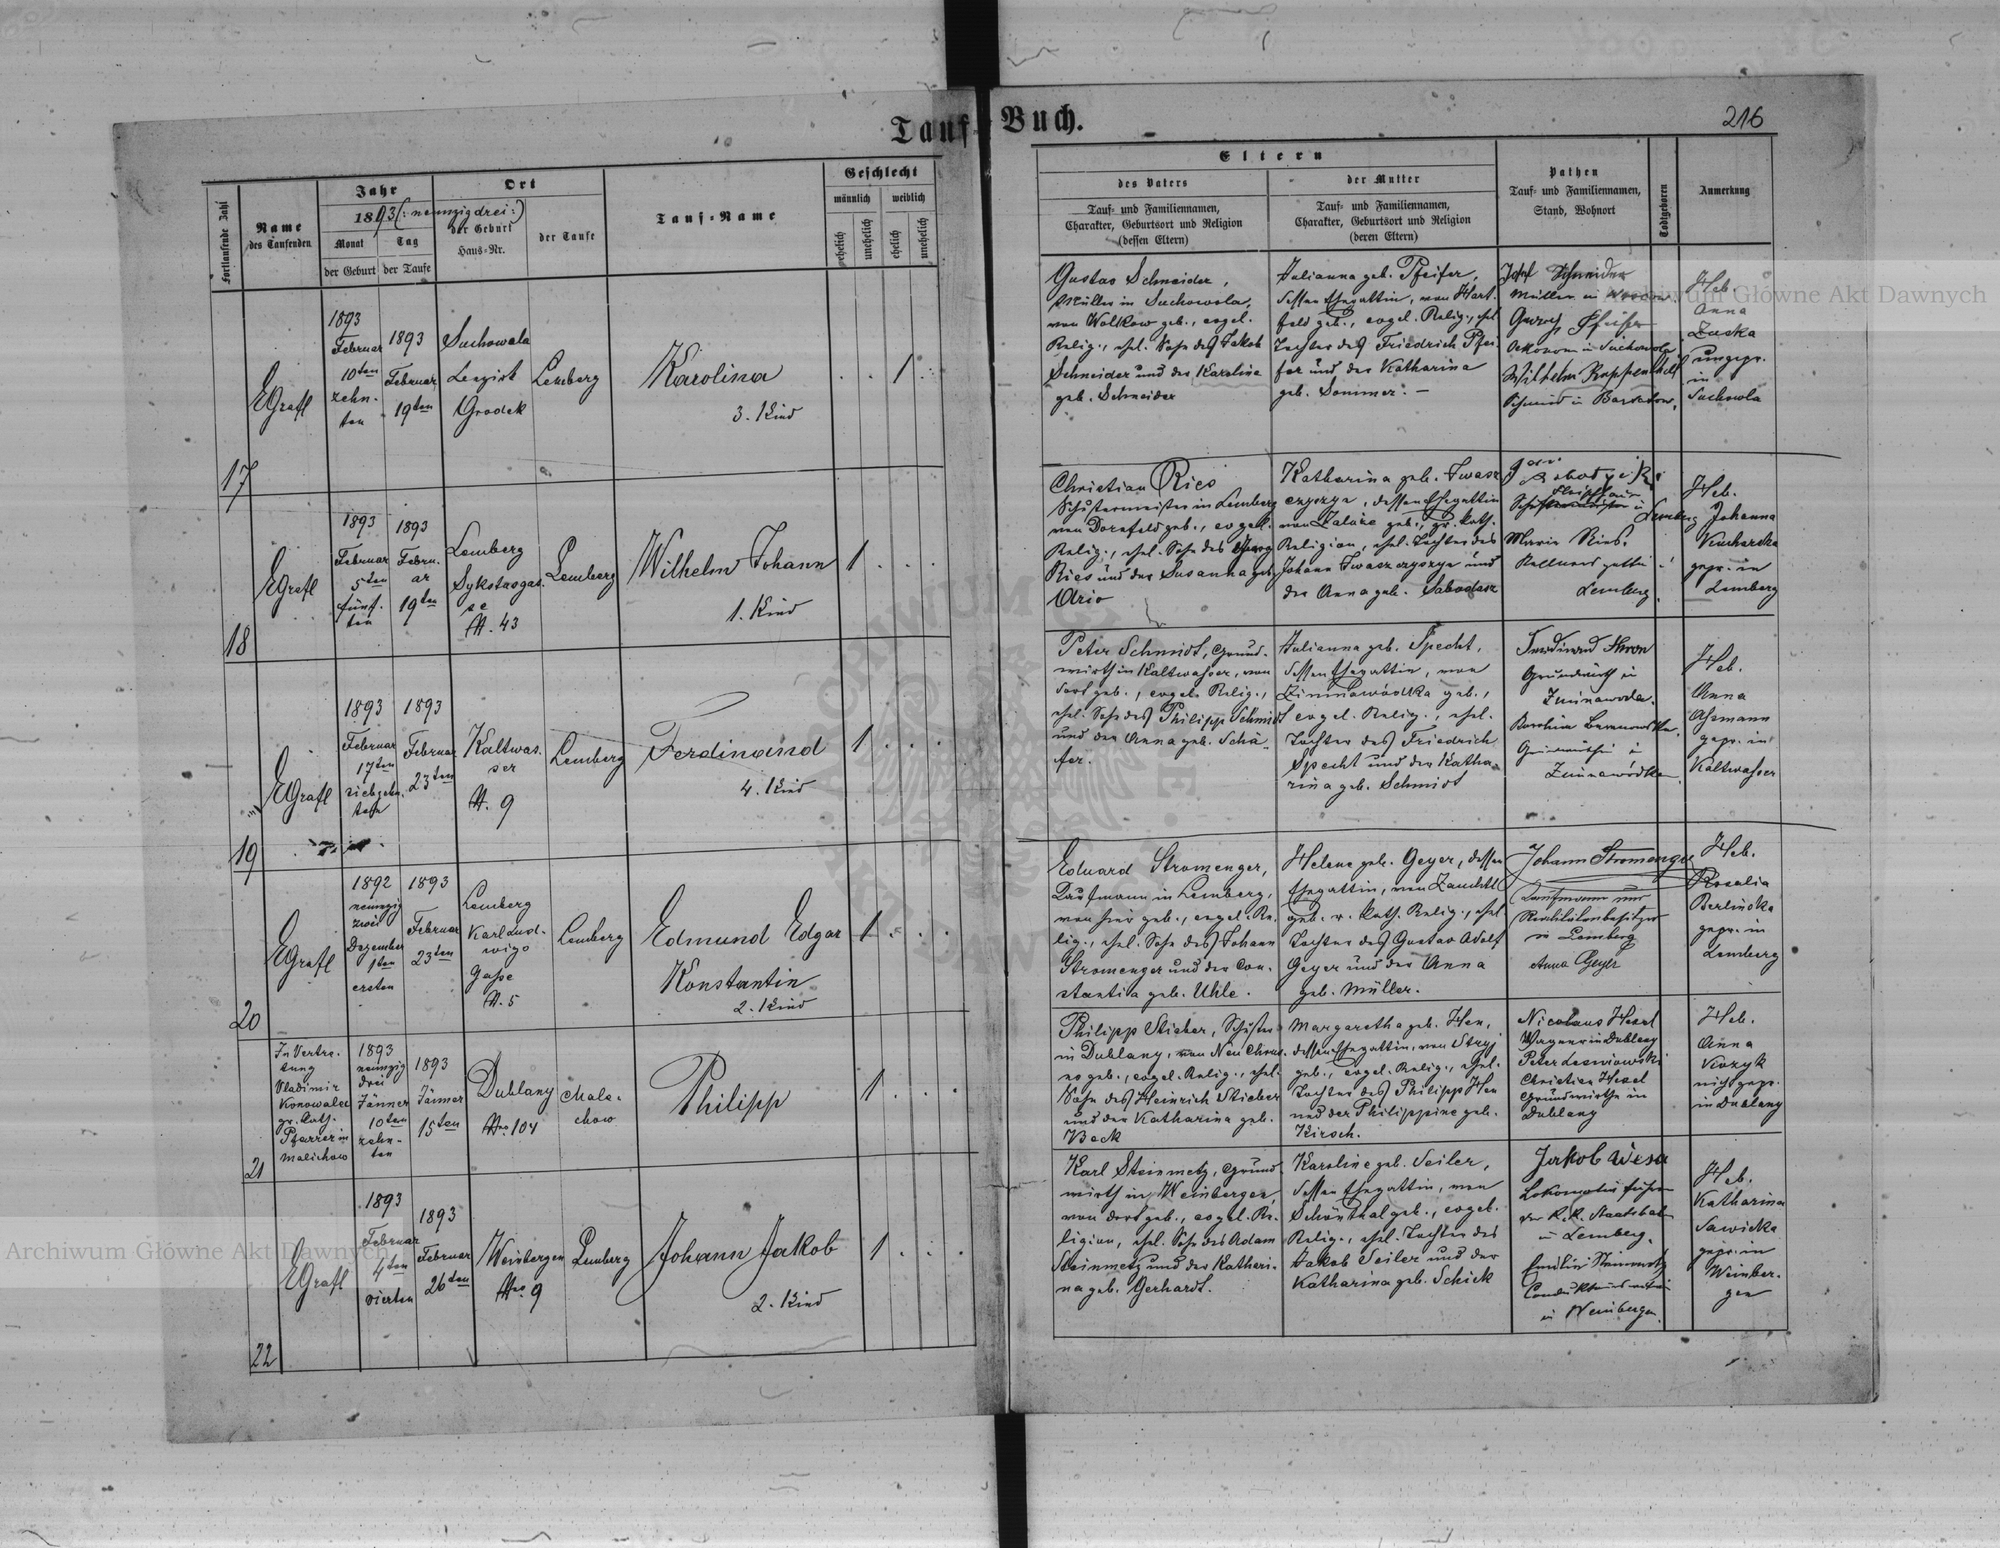 Tauf-Buch.
216
Fortlaufende Zahl
Name
des Taufenden
Jahr
1893 (: neunzigdrei :)
Monat
der Geburt
Tag
der Taufe
Ort
der Geburt
Haus-Nr.
der Taufe
Tauf-Name
Geschlecht
männlich
weiblich
ehelich
unehelich
ehelich
unehelich
Eltern
des Vaters
Tauf- und Familiennamen,
Charakter, Geburtsort und Religion
(dessen Eltern)
der Mutter
Tauf- und Familiennamen,
Charakter, Geburtsort und Religion
(deren Eltern)
Pathen
Tauf- und Familiennamen,
Stand, Wohnort
Todtgeboren
Anmerkung
17
EGrafl
1893
Februar
10ten
zehn-
ten
1893
Februar
19ten
Suchowola
Bezirk
Grodek
Lemberg
Karolina
3. Kind
1
Gustav Schneider,
Müller in Suchowola,
von Wolkow geb., evgel.
Relig., ehel. Sohn des Jakob
Schneider und der Karolina
geb. Schneider
Julianna geb. Pfeifer,
dessen Ehegattin, von Hart-
feld geb., evgel. Relig., ehel.
Tochter des Friedrich Pfei-
fer und der Katharina
geb. Sommer. –
Josef Schneider
Müller in
Georg Pfeifer
Oekonom in Suchowola
Wilhelm
Schmid in
Heb.
Anna
Zuska
ungepr.
in
Suchowola
18
EGrafl
1893
Februar
5ten
fünf-
ten
1893
Febru-
ar
19ten
Lemberg
Sykstusgas-
se
N. 43
Lemberg
Wilhelm Johann
1. Kind
1
Christian Ries
Schustermeister in Lemberg
von Dornfeld geb., evgel.
Relig., ehel. Sohn des Georg
Ries und der Susanna geb.
Katharina geb. Iwasz
czyszyn, dessen Ehegattin
von Zalaże geb., gr. kath.
Religion, ehel. Tochter des
Johann Iwaszczyszyn und
der Anna geb. Sabadasz
Lemberg
Maria Ries,
Lemberg.
Heb.
Johanna
Kucharska
gepr. in
Lemberg
19
EGrafl
1893
Februar
17ten
siebzehn-
ten
1893
Februar
23ten
Kaltwas-
ser
N. 9
Lemberg
Ferdinand
4. Kind
1
Peter Schmidt, Grund-
wirth in Kaltwasser, von
dort geb., evgel. Relig.,
ehel. Sohn des Philipp Schmidt
und der Anna geb. Schä-
fer.
Julianna geb. Specht,
dessen Ehegattin, von
Zimnawódka geb.,
evgel. Relig., ehel.
Tochter des Friedrich
Specht und der Katha-
rina geb. Schmidt
Ferdinand
Grundwirth in
Zimnawoda.
Grundwirthin in
Zimnawódka.
Heb.
Anna
Assmann
gepr. in
Kaltwasser
20
EGrafl
1892
neunzig
zwei
Dezember
1ten
ersten
1893
Februar
23ten
Lemberg
Karl Lud-
wigs
Gasse
N. 5
Lemberg
Edmund Edgar
Konstantin
2. Kind
1
Eduard Stromenger,
Kaufmann in Lemberg,
von hier geb., evgel. Re-
lig., ehel. Sohn des Johann
Stromenger und der Con-
stantia geb. Uhle.
Helene geb. Geyer, dessen
Ehegattin, von Zauchtl
geb. r. kath. Relig., ehel.
Tochter des Gustav Adolf
Geyer und der Anna
geb. Müller.
Johann Stromenger
Kaufmann und
Realitätenbesitzer
in Lemberg
Anna Geyer
Heb.
Rosalia
Berlińska
gepr. in
Lemberg
21
In Vertre-
tung
Vladimir
Konowalec
gr. kath.
Pfarrer in
Malichow
1893
neunzig
drei
Jänner
10ten
zehn-
ten
1893
Jänner
15ten
Dublany
Nro 104
Male-
chow
Philipp
1
Philipp Stieber, Schuster
in Dublany, von
geb., evgel. Relig., ehel.
Sohn des Heinrich Stieber
und der Katharina geb.
Beck
Margaretha geb. Hen,
dessen Ehegattin, von Stryj
geb., evgel. Relig., ehel.
Tochter des Philipp Hen
und der Philippine geb.
Kirsch.
Nicolaus Hezel
Wagner in Dublany
Peter
Christian Hezel
Grundwirthe in
Dublany
Heb.
Anna
Kozyk
nicht gepr.
in Dublany
22
EGrafl
1893
Februar
4ten
vierten
1893
Februar
26ten
Weinbergen
Nro 9
Lemberg
Johann Jakob
2. Kind
1
Karl Steinmetz, Grund-
wirth in Weinbergen,
von dort geb., evgel. Re-
ligion, ehel. Sohn des Adam
Steinmetz und der Kathari-
na geb. Gerhardt.
Karoline geb. Seiler,
dessen Ehegattin, von
Schönthal geb., evgel.
Relig., ehel. Tochter des
Jakob Seiler und der
Katharina geb. Schick
Jakob Wesa
Lokomotivführer
der k.k. Staatsbahn
in Lemberg.
Emilie Steinmetz
in Weinbergen.
Heb.
Katharina
Sawicka
gepr. in
Weinber-
gen
Archiwum Główne Akt Dawnych
Archiwum Główne Akt Dawnych